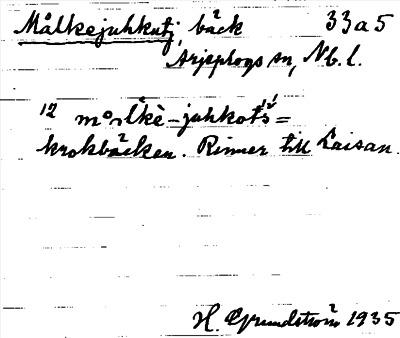 Målkejuhkatj, bäck 33a5
Arjeplogs sn, Nb. l.
12 målkè-juhkots =
krokbäcken. Rinner till Laisan.
H. Grundström 1935